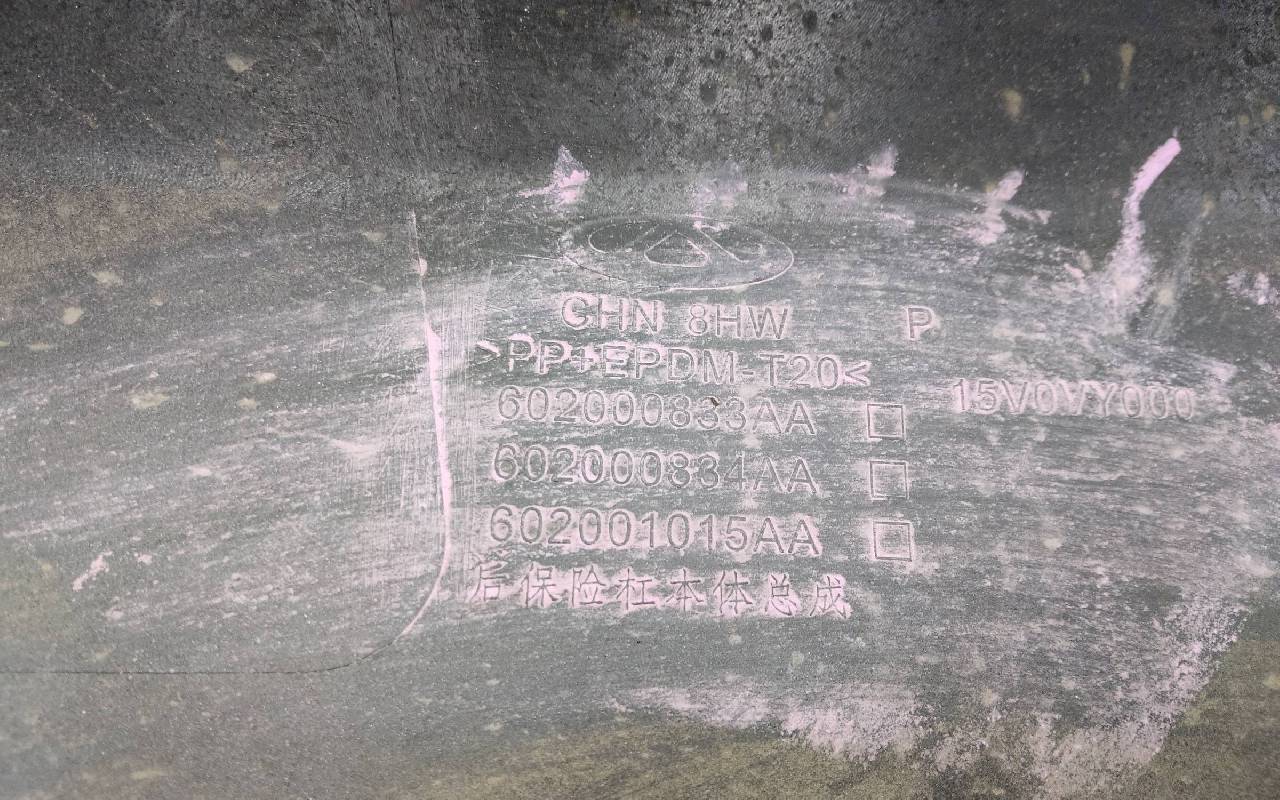 CHN 8HW P
>PP+EPDM-T20<
15V0VY000
602000833AA □
602000834AA □
602001015AA □
后保险杠本体总成